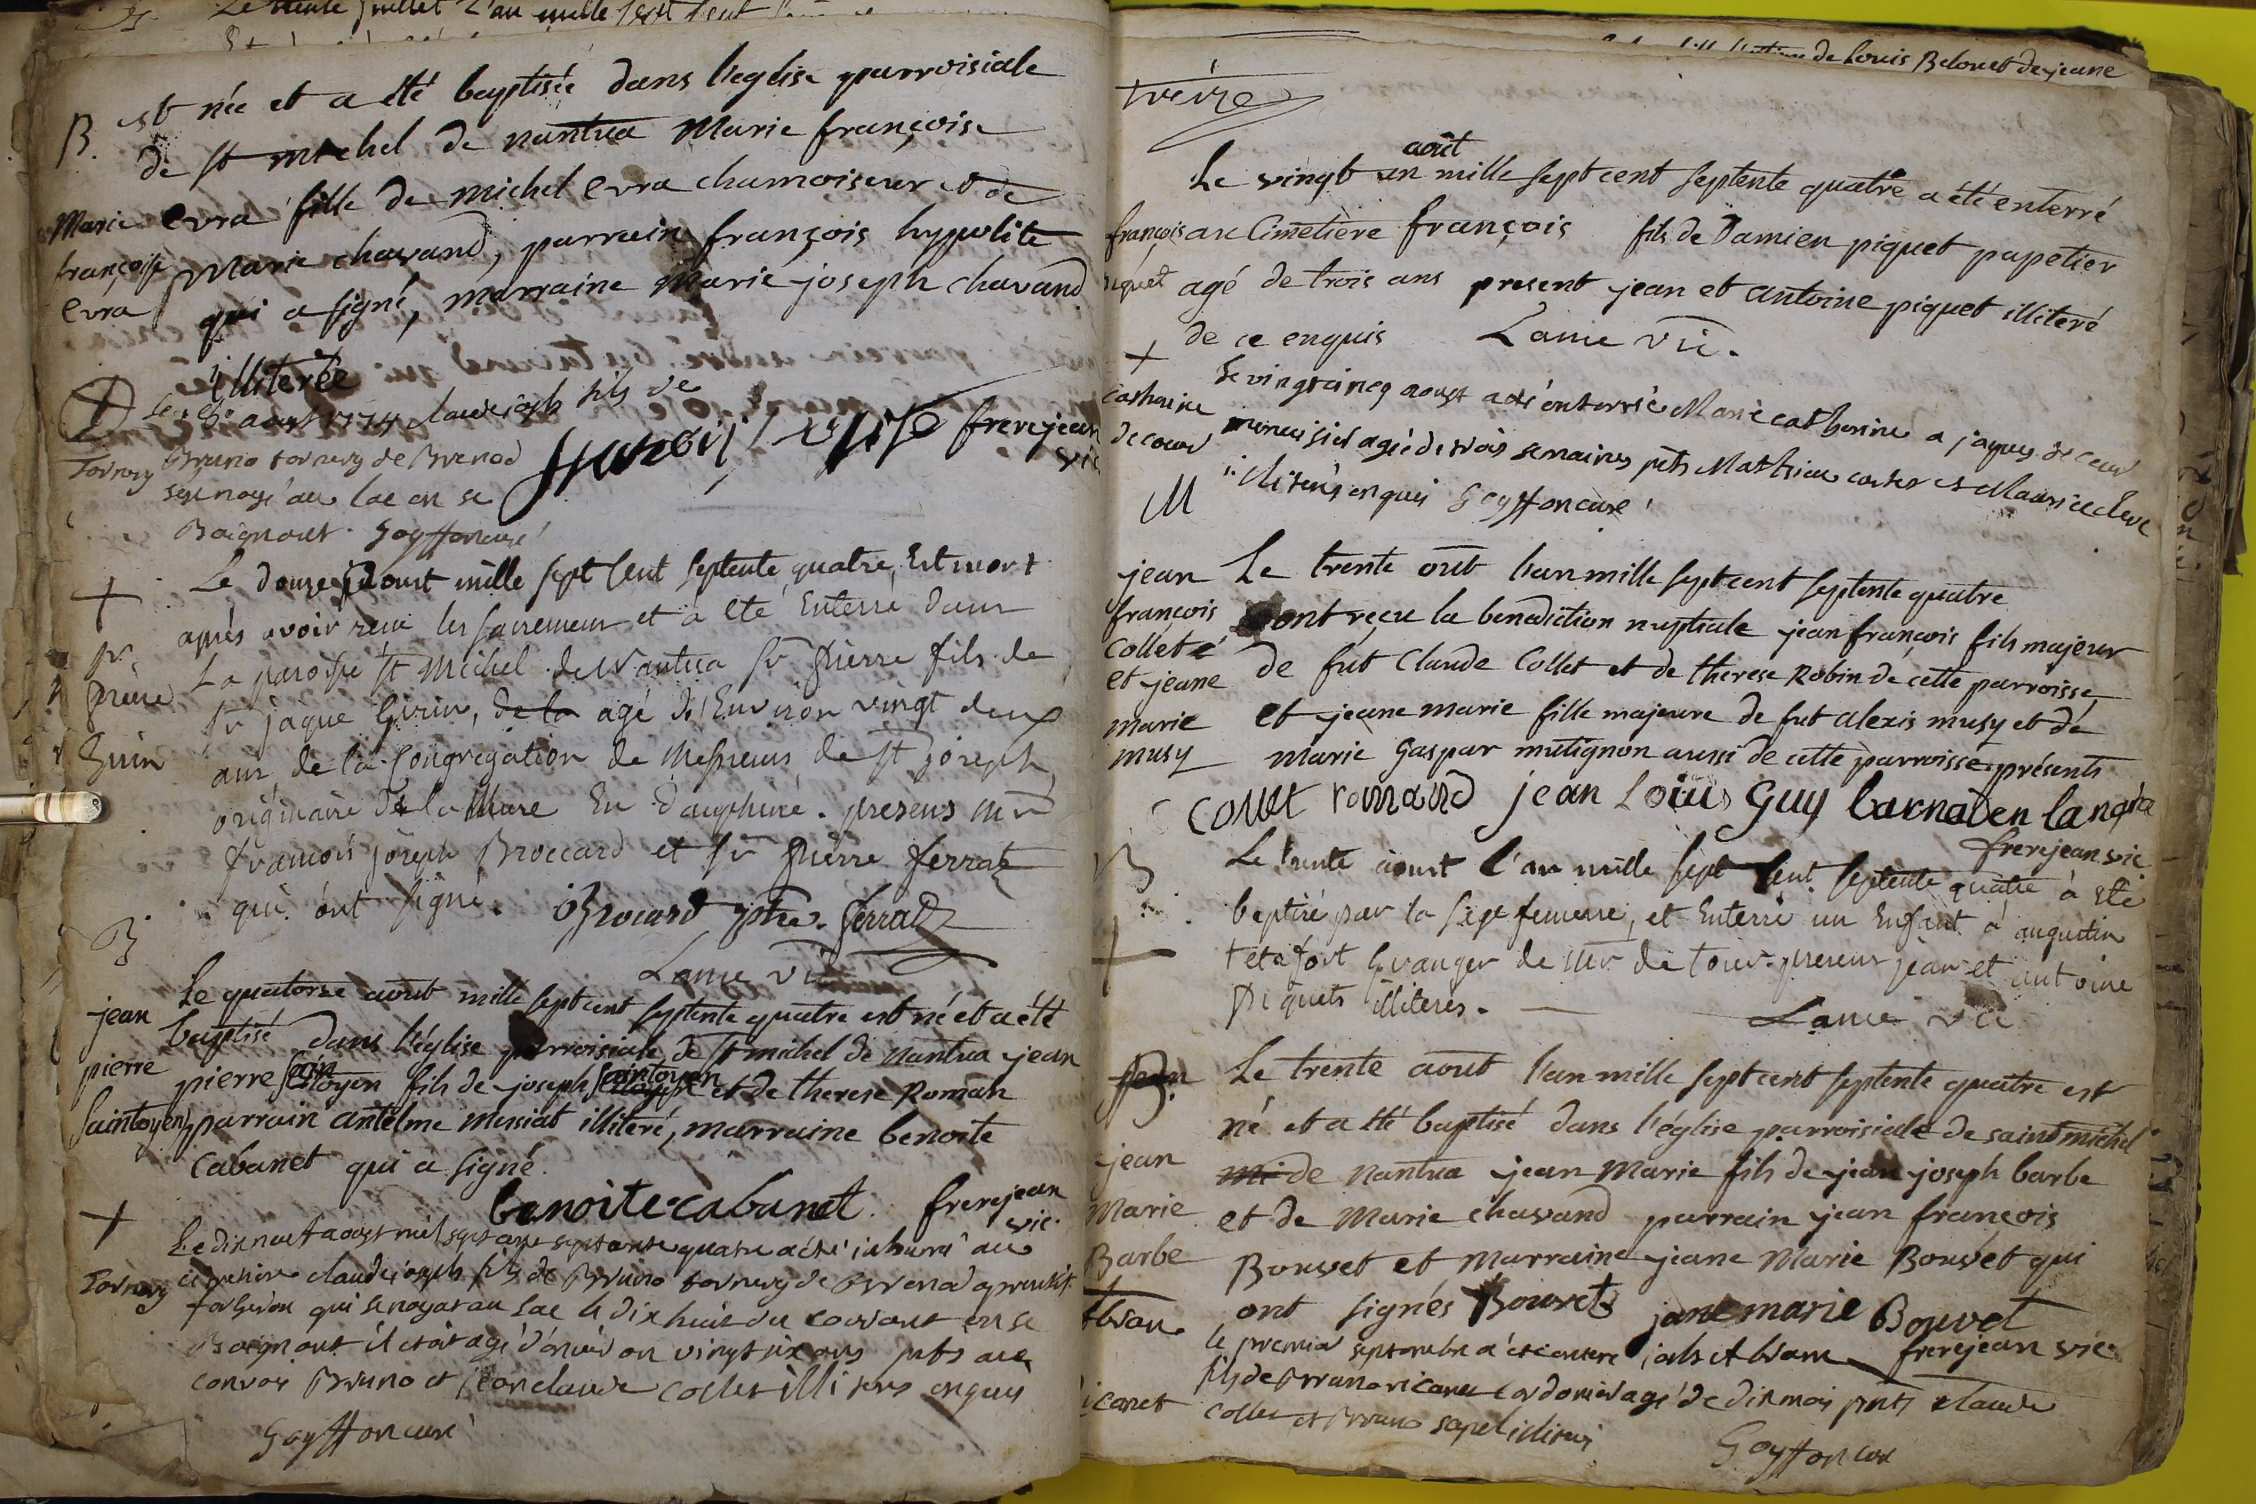 Le trente juillet l'an mille sept sent
B. est née et a été baptisée dans l'eglise parroisiale
de st michel de nantua Marie françoise
Marie Evra fille de michel Evra chamoiseur et de
françoise Marie chavand, parrain françois hypolite
Evra qui a signé, marraine Marie joseph chavand
illiterée
Le aoust 1774 claude joseph fils de
Tornery Bruno tornery de Brenod
sest noyé au lac en se
Baignant. Goyffon curé
françois frerejean
vic
+ Le douze aoust mille sept sent septente quatre, Est mort
après avoir recu les sacremens et à eté Enterré dans
Sr La paroisse st Michel de Nantua Sr pierre fils de
pierre Sr jaque Guin, de la agé d'Environ vingt deux
Guin ans, de la Congrégation de Messieurs de st joseph
originaire de la Mure En Dauphiné. presens Mr
francois joseph Broccard et Sr pierre ferrat
qui ont signé. Brocard ptre. ferrat
Lanie Vic
B
Le quatorze aout mille sept cent septente quatre est né et a été
jean baptisé dans l'église parroisiale de st michel de nantua jean
pierre pierre saintoyen fils de joseph saintoyen et de therese Roman
Saintoyen parrain antelme messiat illiteré, marraine benoite
Cabanet qui a signé.
benoite cabanet. frerejean
vic.
+ Le dixneuf aoust mil sept cent septante quatre a été inhumé au
Tornery cimetiere claude joseph fils de Bruno tornery de Brenod aprentif
forgeron qui se noyat au Lac le dix huit du courant en se
Baignant il etoit agé d'environ vingt six ans pnts au
convoy Bruno et jean claude collet illiterés enquis
Goyffon curé
de Louis Belouet de jeane
treize
août
Le vingt un mille sept cent septente quatre a été enterré
françois au Cimetière françois fils de Damien piquet papetier
piquet agé de trois ans present jean et antoine piquet illiteré
de ce enquis Lanie Vic.
+ Le vingt cinq aoust a été enterrée Marie catherine a jaques decour
catherine agée de trois semaines pnts Mathieu et Maurice
decour illiterés enquis Goyffon curé
M
jean Le trente oût l'an mille sept cent septente quatre
françois ont reçu la benediction nuptiale jean françois fils majeur
Collet de fut Claude Collet et de therese Robin de cette parroisse
et jeane et jeane marie fille majeure de fut alexis musy et de
marie marie Gaspar mutignon aussi de cette parroisse présents
musy
Collet romand jean Louis Guy
frerejean vic
B Le trente aoust l'an mille sept sent septente quatre à eté
+ baptisé par la sage femme, et Enterré un Enfant à augustin
tetafort Granger de Mr de tour. presens jean et antoine
piquets illiteres. Lanie Vic
B. Le trente aout l'an mille sept cent septente quatre est
né et a été baptisé dans l'église parroisiale de saint michel
jean mi de nantua jean Marie fils de jean joseph barbe
Marie et de Marie chavand parrain jean francois
Barbe Bouvet et marraine jeane Marie Bouvet qui
ont signés Bouvet jane marie Bouvet
Abram le premier septembre a été enterré Abram frerejean vic.
fils de Bruno ricanet cordonier agé de dix mois pnts claude
ricanet collet et Bruno illiterés
Goyffon curé